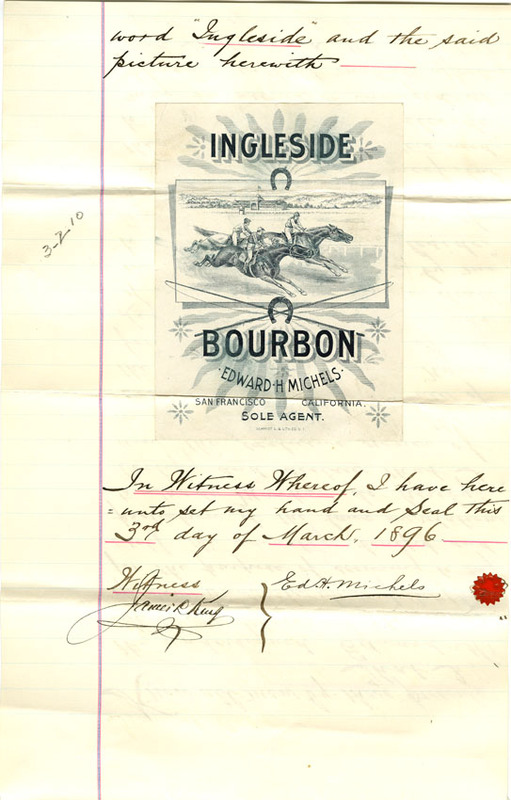 word "Ingleside" and the said
picture herewith
3-2-10
INGLESIDE
BOURBON
·EDWARD·H MICHELS·
SAN FRANCISCO CALIFORNIA.
SOLE AGENT.
In Witness Whereof, I have here
=unto set my hand and Seal this
3rd day of March, 1896
Witness
James R King
Ed. H. Michels